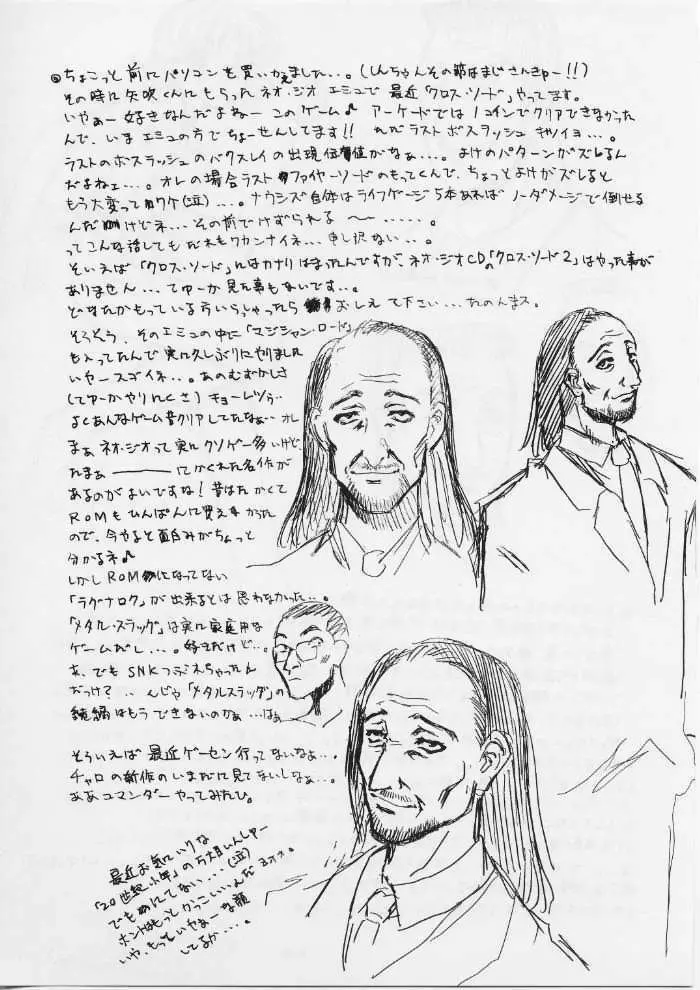 ◎ちょこっと前にパソコンを買いかえました…。(しんちゃんその節はまじさんきゅー!!)
その時に矢吹くんにもらったネオ・ジオエミュで最近「クロス・ソード」やってます。
いやぁー好きなんだよねーこのゲーム♪ アーケードでは1コインでクリアできなかった
んで、いまエミュの方でちょーせんしてます!! ただラストボスラッシュキツイヨ…。
ラストのボスラッシュのバクスレイの出現位置がなぁ…。よけのパターンがズレるん
だよねェ…。オレの場合ラストファイヤーソードのもってくんで、ちょっとよけがズレると
もう大変ってワケ(泣)…。ナウシズ自体はライフゲージ5本あればノーダメージで倒せる
んだけどネ…その前でけずられる〜……。
ってこんな話してもだれもワカンナイネ…申し訳ない…。
そいえば「クロス・ソード」にはカナリはまったんですが、ネオ・ジオCDの「クロス・ソード2」はやった事が
ありません…てゆーか見た事もないです…。
どなたかもっている方いらっしゃったらおしえて下さい…たのんます。
そうそう、そのエミュの中に「マジシャン・ロード」
も入ってたんで実に久しぶりにやりました
いやースゴイネ…。あのむずかしさ
(てゆーかやりにくさ)キョーレツぅ…
よくあんなゲーム昔クリアしてたなぁ…オレ
まぁネオ・ジオって実にクソゲー多いけど
たまぁ―――にかくれた名作が
あるのがよいですね!昔はたかくて
ROMもひんぱんに買えなかった
ので、今やると面白みがちょっと
分かるネ♪
しかしROMになってない
「ラグナロク」が出来るとは思わなかった…。
「メタル・スラッグ」は実に家庭用な
ゲームだし…。好きだけど…。
あ、でもSNKつぶれちゃったん
だっけ?…んじゃ「メタルスラッグ」の
続編はもうできないのかぁ…はぁ
そういえば最近ゲーセン行ってないなぁ…。
チャロの新作のいまだに見てないしなぁ…。
ああコマンダーやってみたひ。
最近お気にいりな
「20世紀少年」の万丈目いんしゅー
でもにてない…(泣)
ホントはもっとかっこいいんだヨォォ。
いや、もっといやぁーな顔
してるか…。